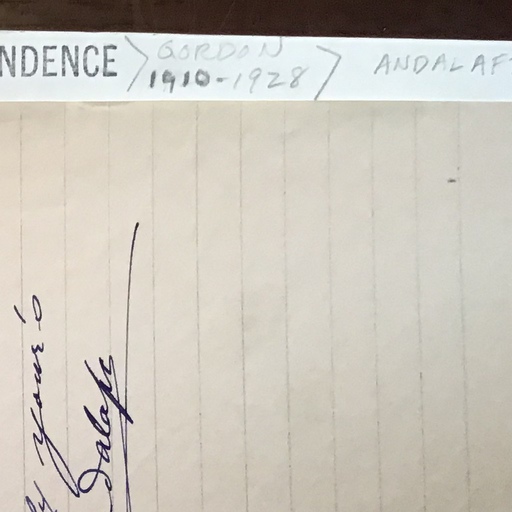 ly your's
Dalafs
NDENCE
GORDON
1910-1928
ANDALAF